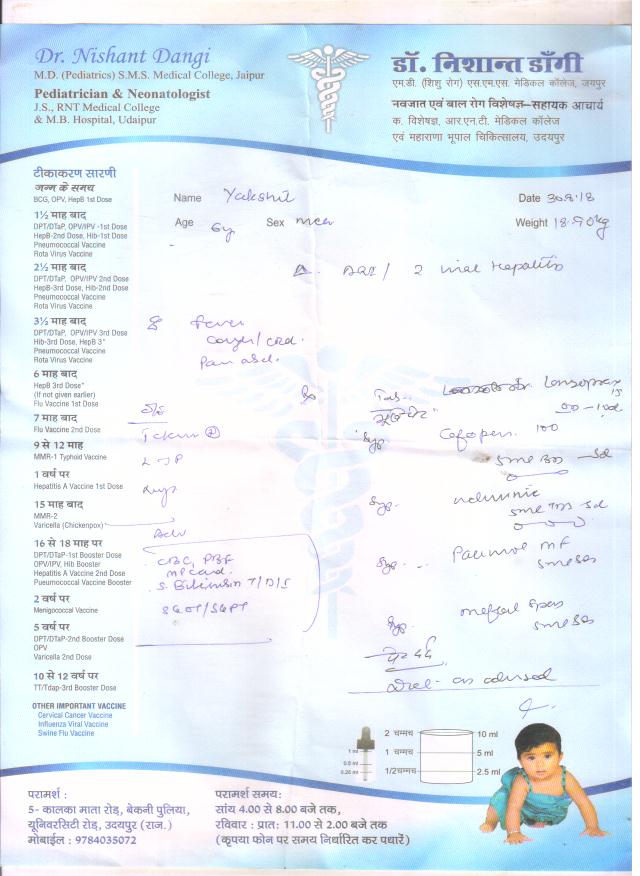 Dr. Nishant Dangi
M.D. (Pediatrics) S.M.S. Medical College, Jaipur
Pediatrician & Neonatologist
J.S., RNT Medical College
& M.B. Hospital, Udaipur
डॉ. निशान्त डाँगी
एम.डी. (शिशु रोग) एस.एम.एस. मेडिकल कॉलेज, जयपुर
नवजात एवं बाल रोग विशेषज्ञ–सहायक आचार्य
क. विशेषज्ञ, आर.एन.टी. मेडिकल कॉलेज
एवं महाराणा भूपाल चिकित्सालय, उदयपुर
टीकाकरण सारणी
जन्म के समय
BCG, OPV, HepB 1st Dose
1½ माह बाद
DPT/DTaP, OPV/IPV -1st Dose
HepB-2nd Dose, Hib-1st Dose
Pneumococcal Vaccine
Rota Virus Vaccine
2½ माह बाद
DPT/DTaP, OPV/IPV 2nd Dose
HepB-3rd Dose, Hib-2nd Dose
Pneumococcal Vaccine
Rota Virus Vaccine
3½ माह बाद
DPT/DTaP, OPV/IPV 3rd Dose
Hib-3rd Dose, HepB 3*
Pneumococcal Vaccine
Rota Virus Vaccine
6 माह बाद
HepB 3rd Dose*
(If not given earlier)
Flu Vaccine 1st Dose
7 माह बाद
Flu Vaccine 2nd Dose
9 से 12 माह
MMR-1 Typhoid Vaccine
1 वर्ष पर
Hepatitis A Vaccine 1st Dose
15 माह बाद
MMR-2
Varicella (Chickenpox)
16 से 18 माह पर
DPT/DTaP-1st Booster Dose
OPV/IPV, Hib Booster
Hepatitis A Vaccine 2nd Dose
Pueumococcal Vaccine Booster
2 वर्ष पर
Menigococcal Vaccine
5 वर्ष पर
DPT/DTaP-2nd Booster Dose
OPV
Varicella 2nd Dose
10 से 12 वर्ष पर
TT/Tdap-3rd Booster Dose
OTHER IMPORTANT VACCINE
Cervical Cancer Vaccine
Influenza Viral Vaccine
Swine Flu Vaccine
Name Yakshit Date 30.8.18
Age 6y Sex Weight 18.90kg
Δ. / ? viral Hepatitis
fever
cough/cold.
Pain abd.
Adv
CBC, PBF
MP card.
S. Bilirubin T/D/I
SGOT/SGPT
Rx
Tab.
Syp. 100
Syp.
Syp. MF
Syp. meftal spas
Diet as advised
2 चम्मच 10 ml
1 चम्मच 5 ml
1/2 चम्मच 2.5 ml
1 ml
0.5 ml
0.25 ml
परामर्श :
5- कालका माता रोड़, बेकनी पुलिया,
यूनिवरसिटी रोड़, उदयपुर (राज.)
मोबाईल : 9784035072
परामर्श समय:
सांय 4.00 से 8.00 बजे तक,
रविवार : प्रात: 11.00 से 2.00 बजे तक
(कृपया फोन पर समय निर्धारित कर पधारें)